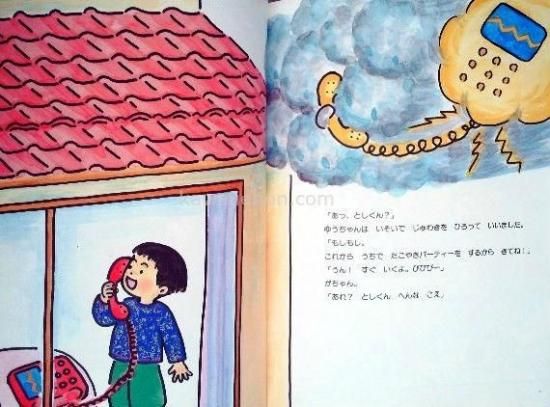 「あっ、としくん?」
ゆうちゃんは いそいで じゅわきを ひろって いいました。
「もしもし。
これから うちで たこやきパーティーを するから きてね!」
「うん! すぐ いくよ。びびびー」
がちゃん。
「あれ? としくん へんな こえ」